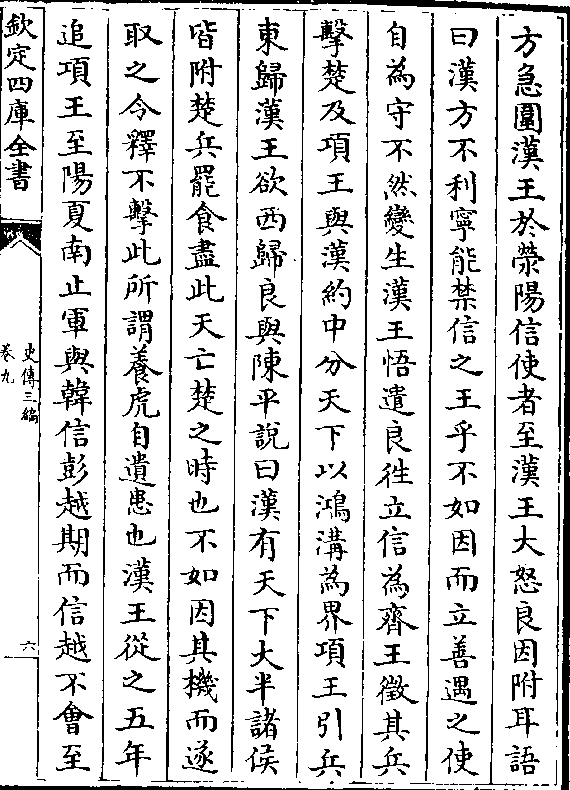 方急圍漢王於滎陽信使者至漢王大怒良因附耳語
曰漢方不利寧能禁信之王乎不如因而立善遇之使
自為守不然變生漢王悟遣良徃立信為齊王徵其兵
擊楚及項王與漢約中分天下以鴻溝為界項王引兵
東歸漢王欲西歸良與陳平說曰漢有天下大半諸侯
皆附楚兵罷食盡此天亡楚之時也不如因其機而遂
取之今釋不擊此所謂養虎自遺患也漢王從之五年
追項王至陽夏南止軍與韓信彭越期而信越不會至
欽定四庫全書
史傳三編
卷九
六